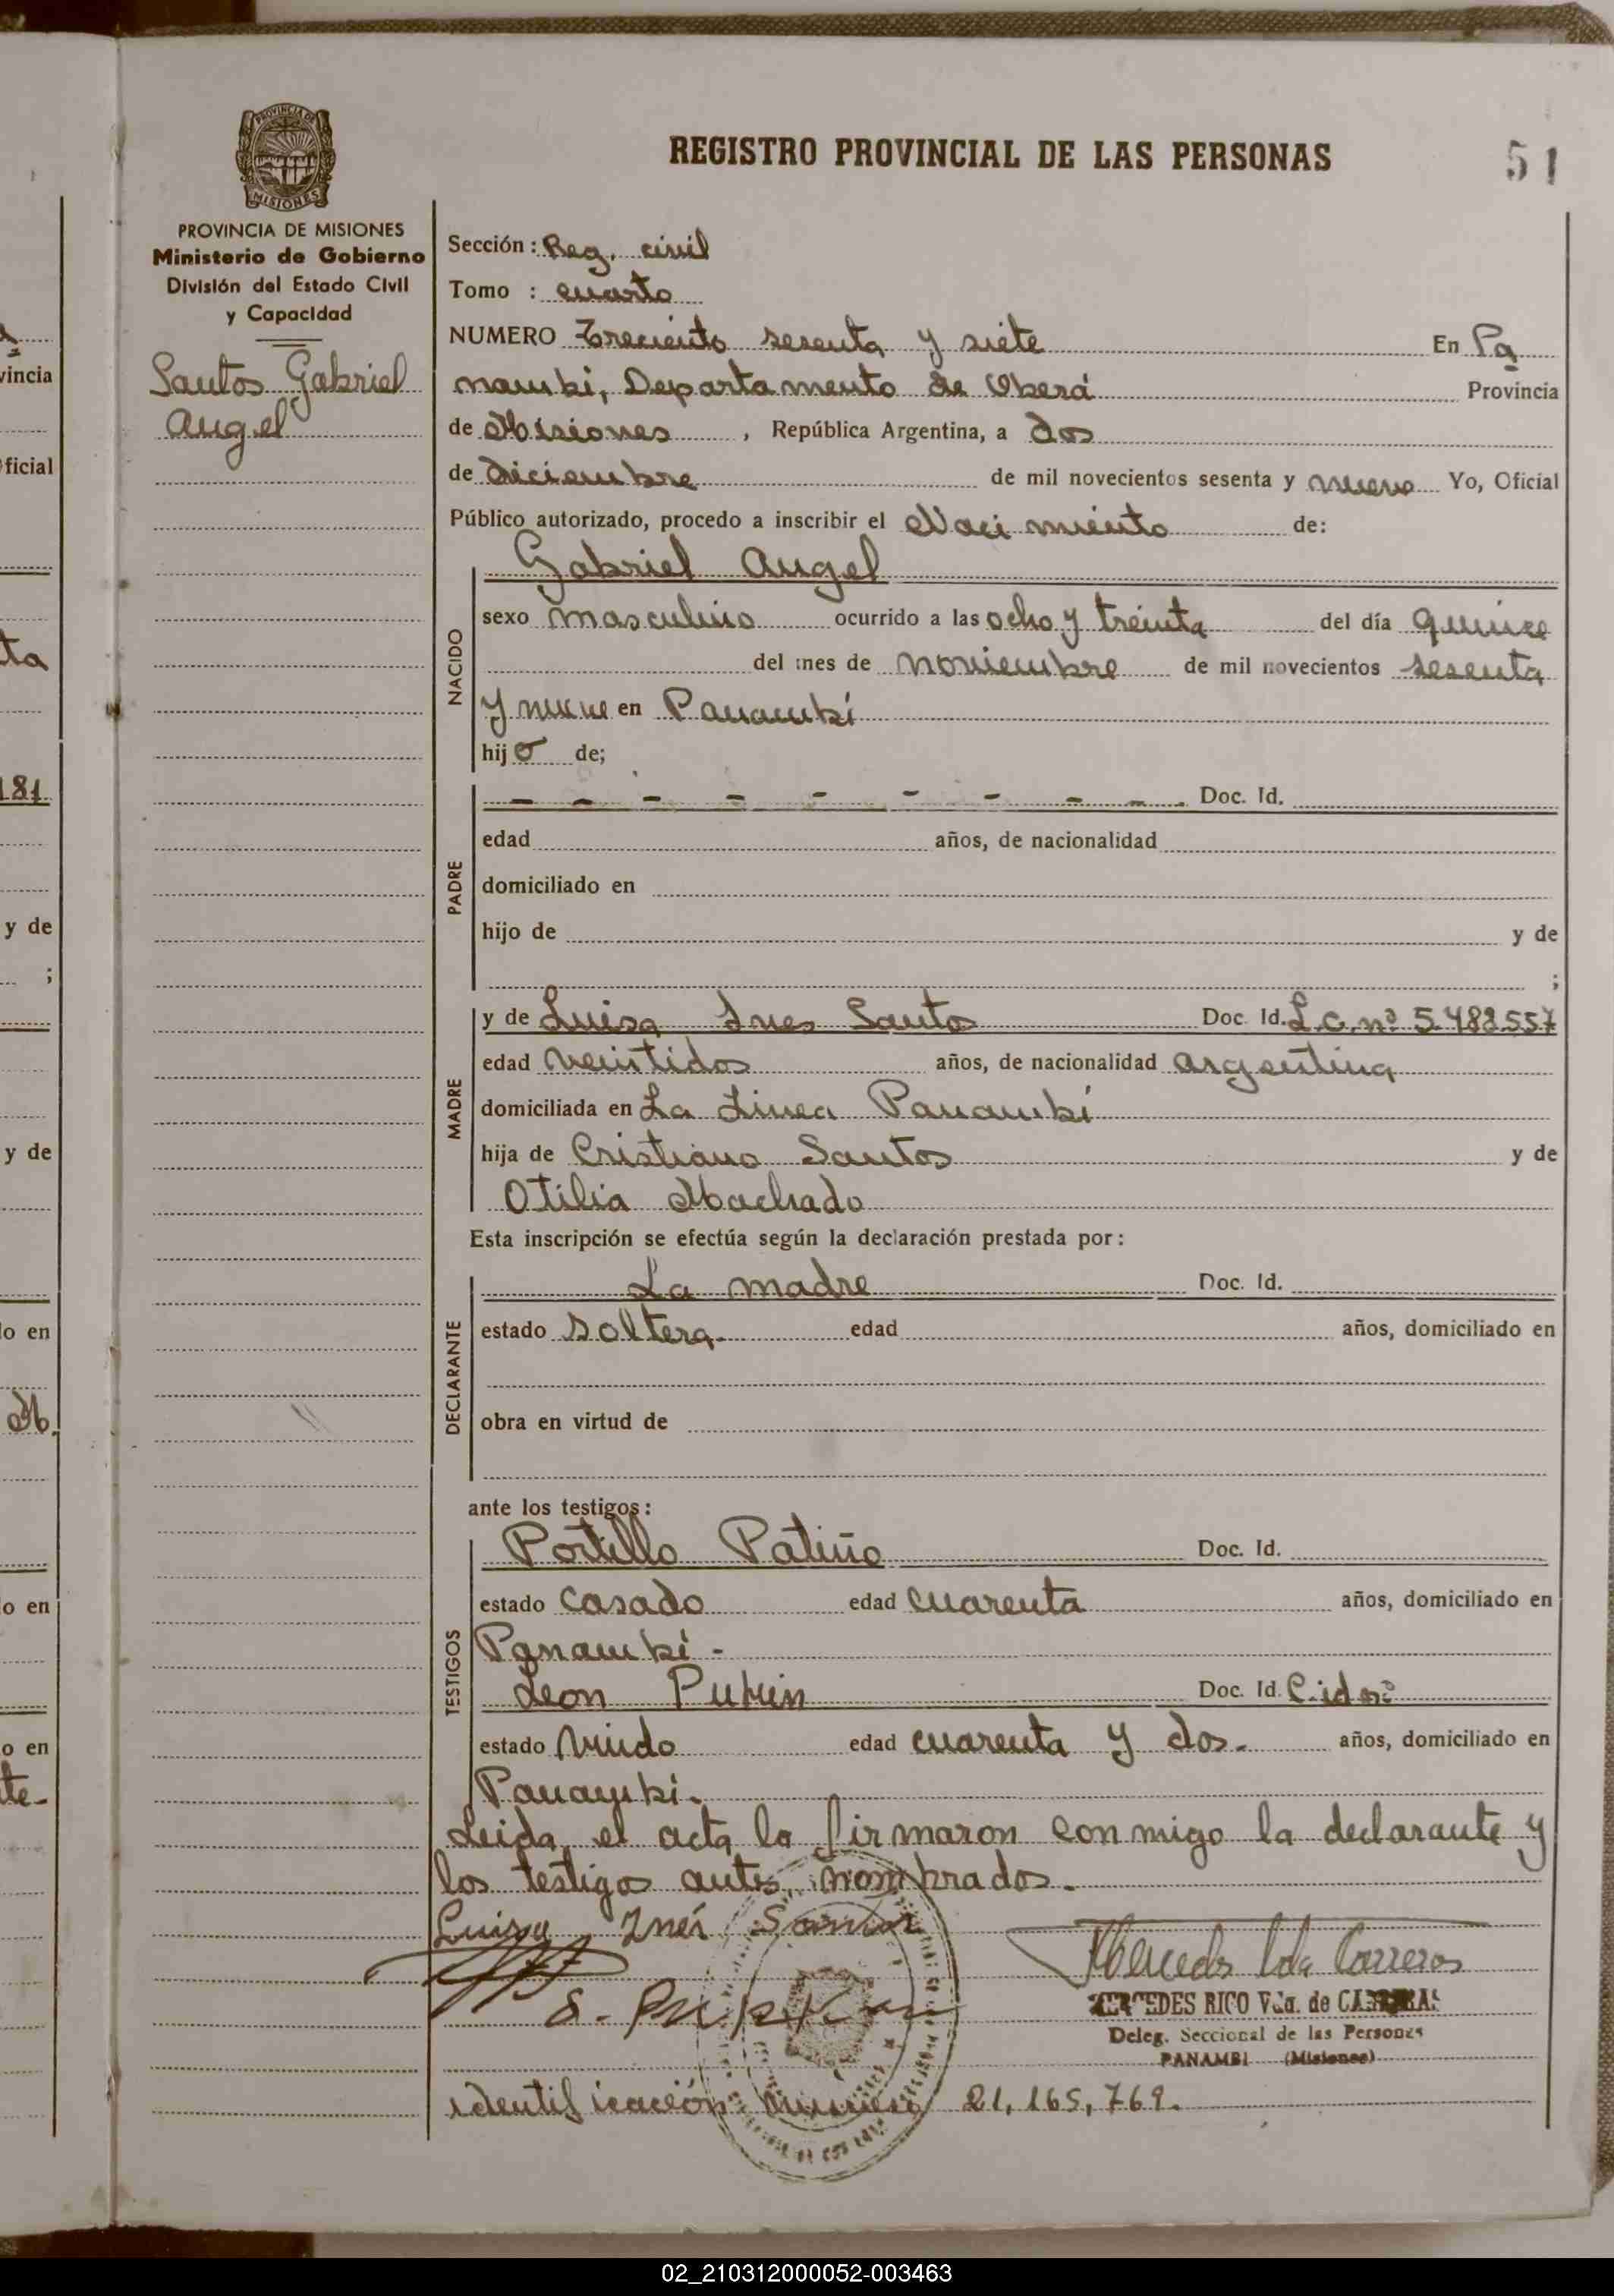 REGISTRO PROVINCIAL DE LAS PERSONAS
51
PROVINCIA DE MISIONES
PROVINCIA DE MISIONES
Ministerio de Gobierno
División del Estado Civil
y Capacidad
Santos Gabriel
Angel
Sección: Reg. civil
Tomo : cuarto
NUMERO Treciento sesenta y siete En Pa
nambí, Departamento de Oberá Provincia
de Misiones, República Argentina, a dos
de diciembre de mil novecientos sesenta y nueve Yo, Oficial
Público autorizado, procedo a inscribir el Nacimiento de:
NACIDO
Gabriel Angel
sexo masculino ocurrido a las ocho y treinta del día quince
del mes de noviembre de mil novecientos sesenta
y nueve en Panambí
hijo de;
PADRE
- - - - - - - - - Doc. Id.
edad años, de nacionalidad
domiciliado en
hijo de y de
;
MADRE
y de Luisa Ines Santos Doc. Id. L.C. nº 5.488.557
edad veintidos años, de nacionalidad argentina
domiciliada en La Linea Panambí
hija de Cristiano Santos y de
Otilia Machado
Esta inscripción se efectúa según la declaración prestada por:
DECLARANTE
La madre Doc. Id.
estado soltera. edad años, domiciliado en
obra en virtud de
ante los testigos:
TESTIGOS
Portillo Patiño Doc. Id.
estado casado edad cuarenta años, domiciliado en
Panambí -
Leon Doc. Id. C. id nº
estado viudo edad cuarenta y dos. años, domiciliado en
Panambí.
Leida el acta la firmaron conmigo la declarante y
los testigos antes nombrados.
Luisa Inés Santos
MERCEDES RICO Vda. de CARRERAS
Deleg. Seccional de las Personas
PANAMBI (Misiones)
identificación número 21,165,769.
02_210312000052-003463